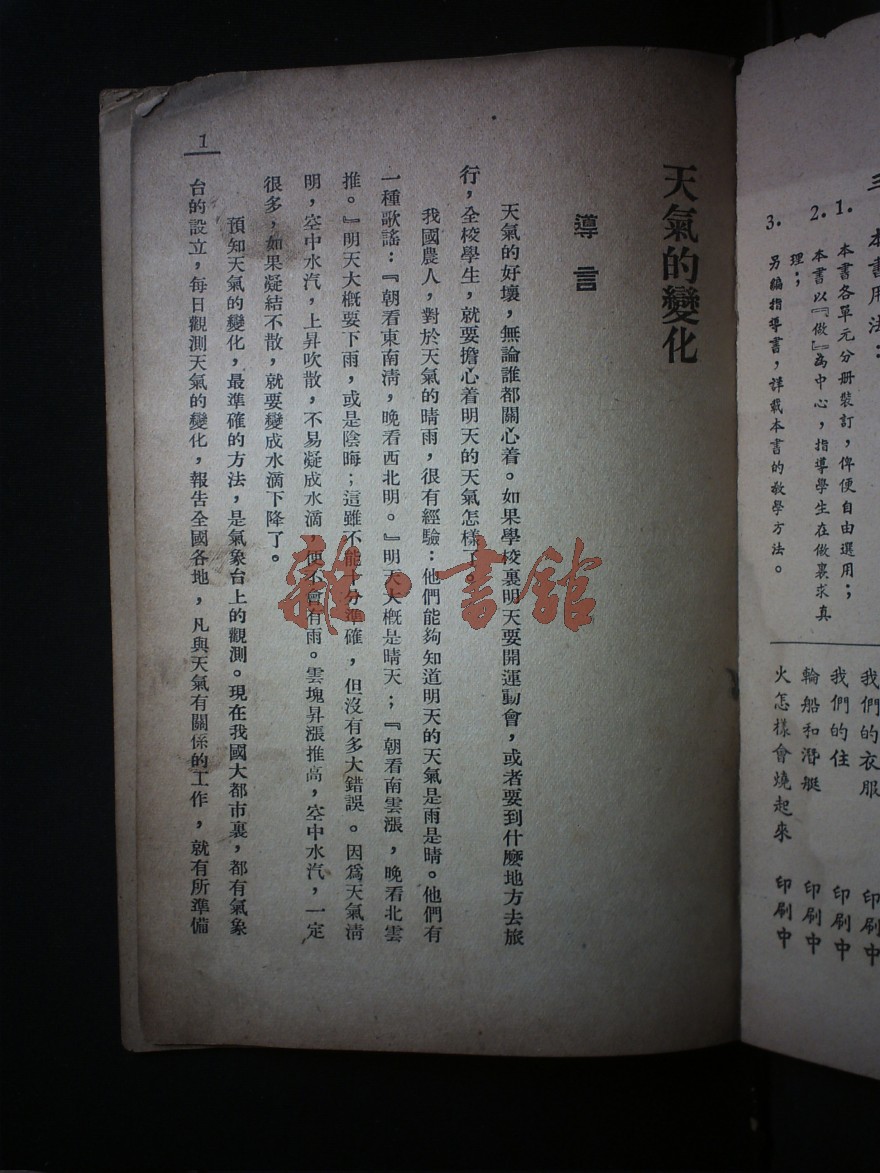 三 本書用法：
1. 本書各單元分册裝訂，俾便自由選用；
2. 本書以『做』為中心，指導學生在做裏求真
理；
3. 另編指導書，詳载本書的教學方法。
我們的衣服 印刷中
我們的住 印刷中
輪船和潛艇 印刷中
火怎樣會燒起來 印刷中
天氣的變化
導言
天氣的好壞，無論誰都關心着。如果學校裏明天要開運動會，或者要到什麽地方去旅
行，全校學生，就要擔心着明天的天氣怎樣了。
我國農人，對於天氣的晴雨，很有經驗：他們能夠知道明天的天氣是雨是晴。他們有
一種歌謠：『朝看東南淸，晚看西北明。』明天大概是晴天；『朝看南雲漲，晚看北雲
推。』明天大概要下雨，或是陰晦；這雖不能十分準確，但沒有多大錯誤。因爲天氣淸
明，空中水汽，上昇吹散，不易凝成水滴，便不會有雨。雲塊昇漲推高，空中水汽，一定
很多，如果凝結不散，就要變成水滴下降了。
預知天氣的變化，最準確的方法，是氣象台上的觀測。現在我國大都市裏，都有氣象
台的設立，每日觀測天氣的變化，報告全國各地，凡與天氣有關係的工作，就有所準備
1
雜·書館